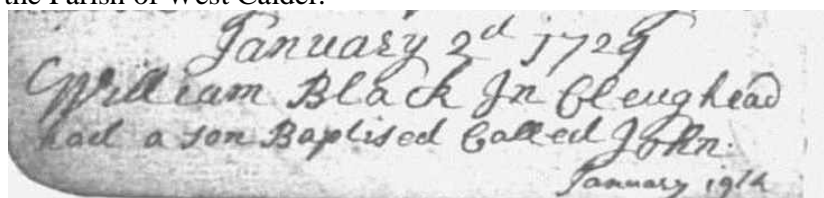 the Parish of West Calder.
January 2d 1729
William Black In Cleughead
had a son Baptised Called John.
January 19th